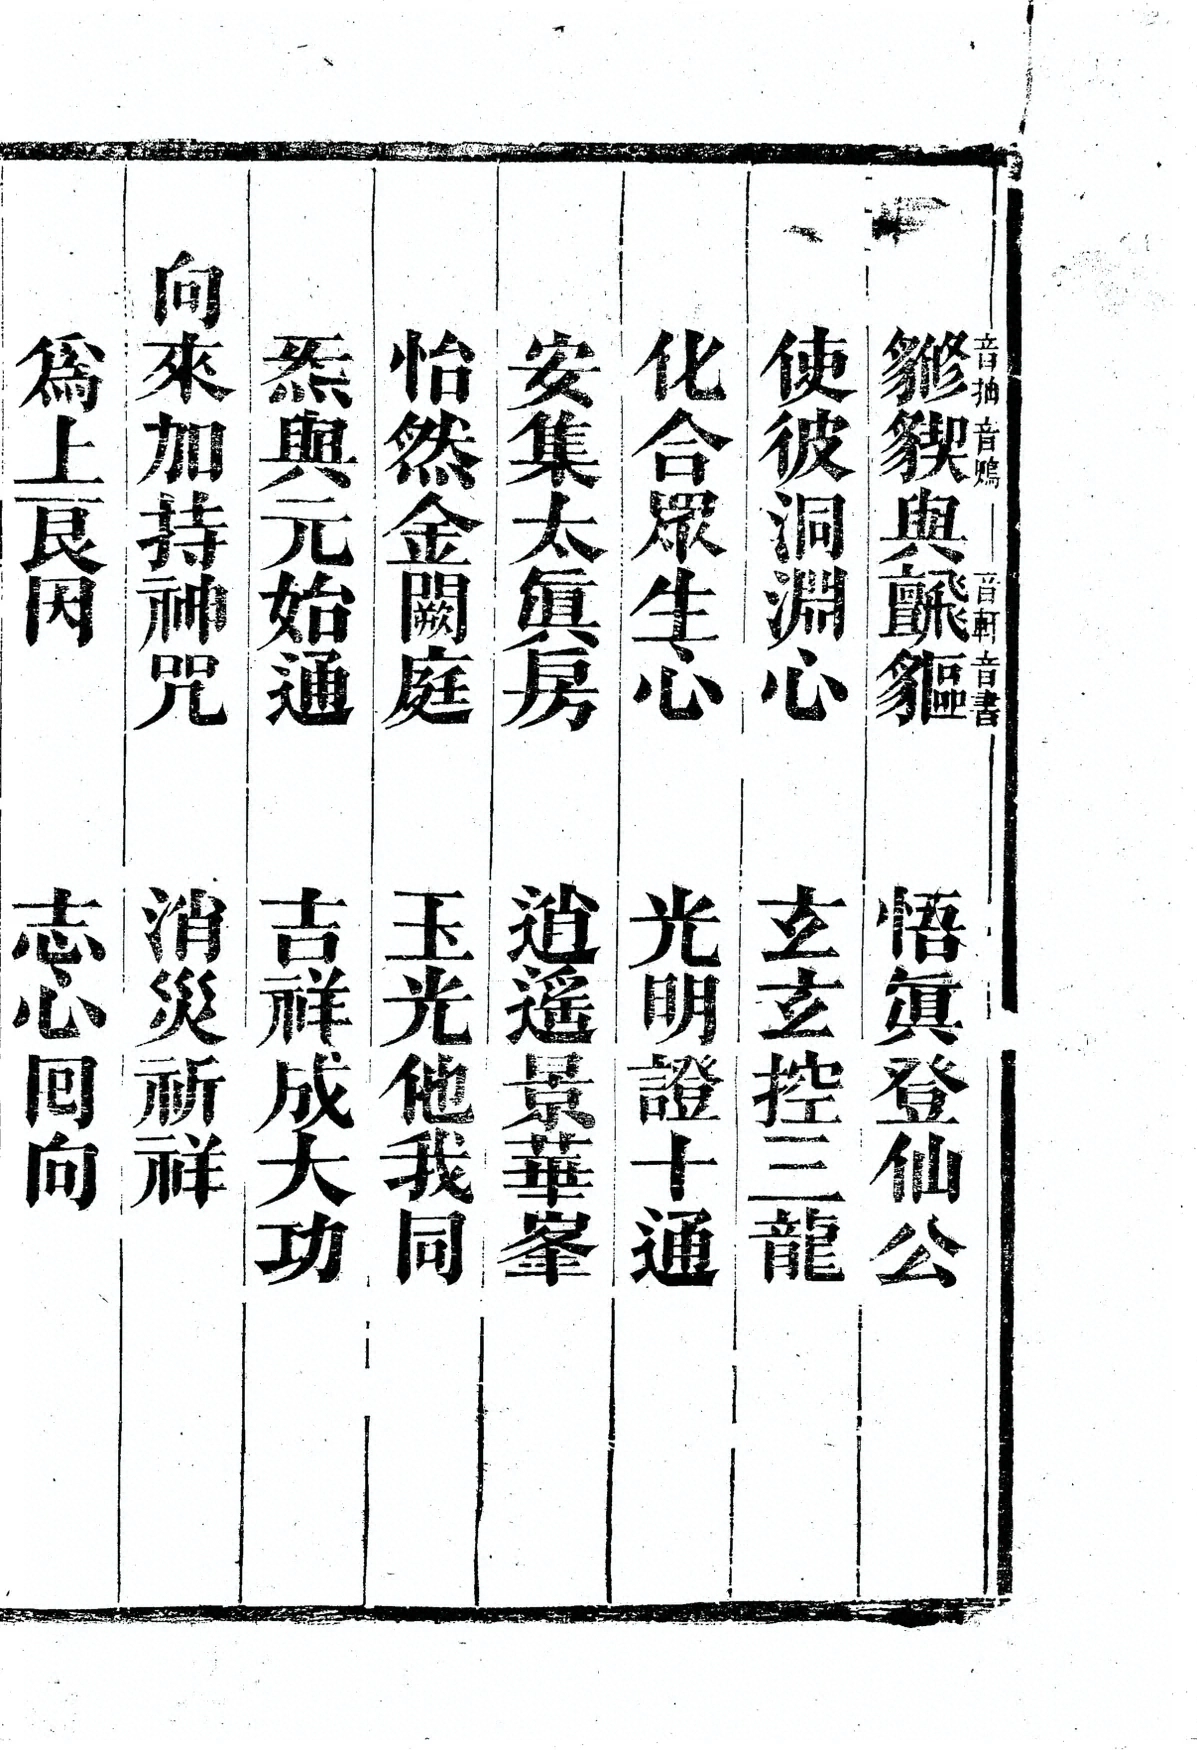 音抽 音 音軒 音書
䝟與貙　悟眞登仙公
使彼洞淵心　玄玄控三龍
化合眾生心　光明證十通
安集太眞房　逍遙景華峯
怡然金闕庭　玉光他我同
炁與元始通　吉祥成大功
向來加持神咒　消災祈祥
爲上良因　志心囘向